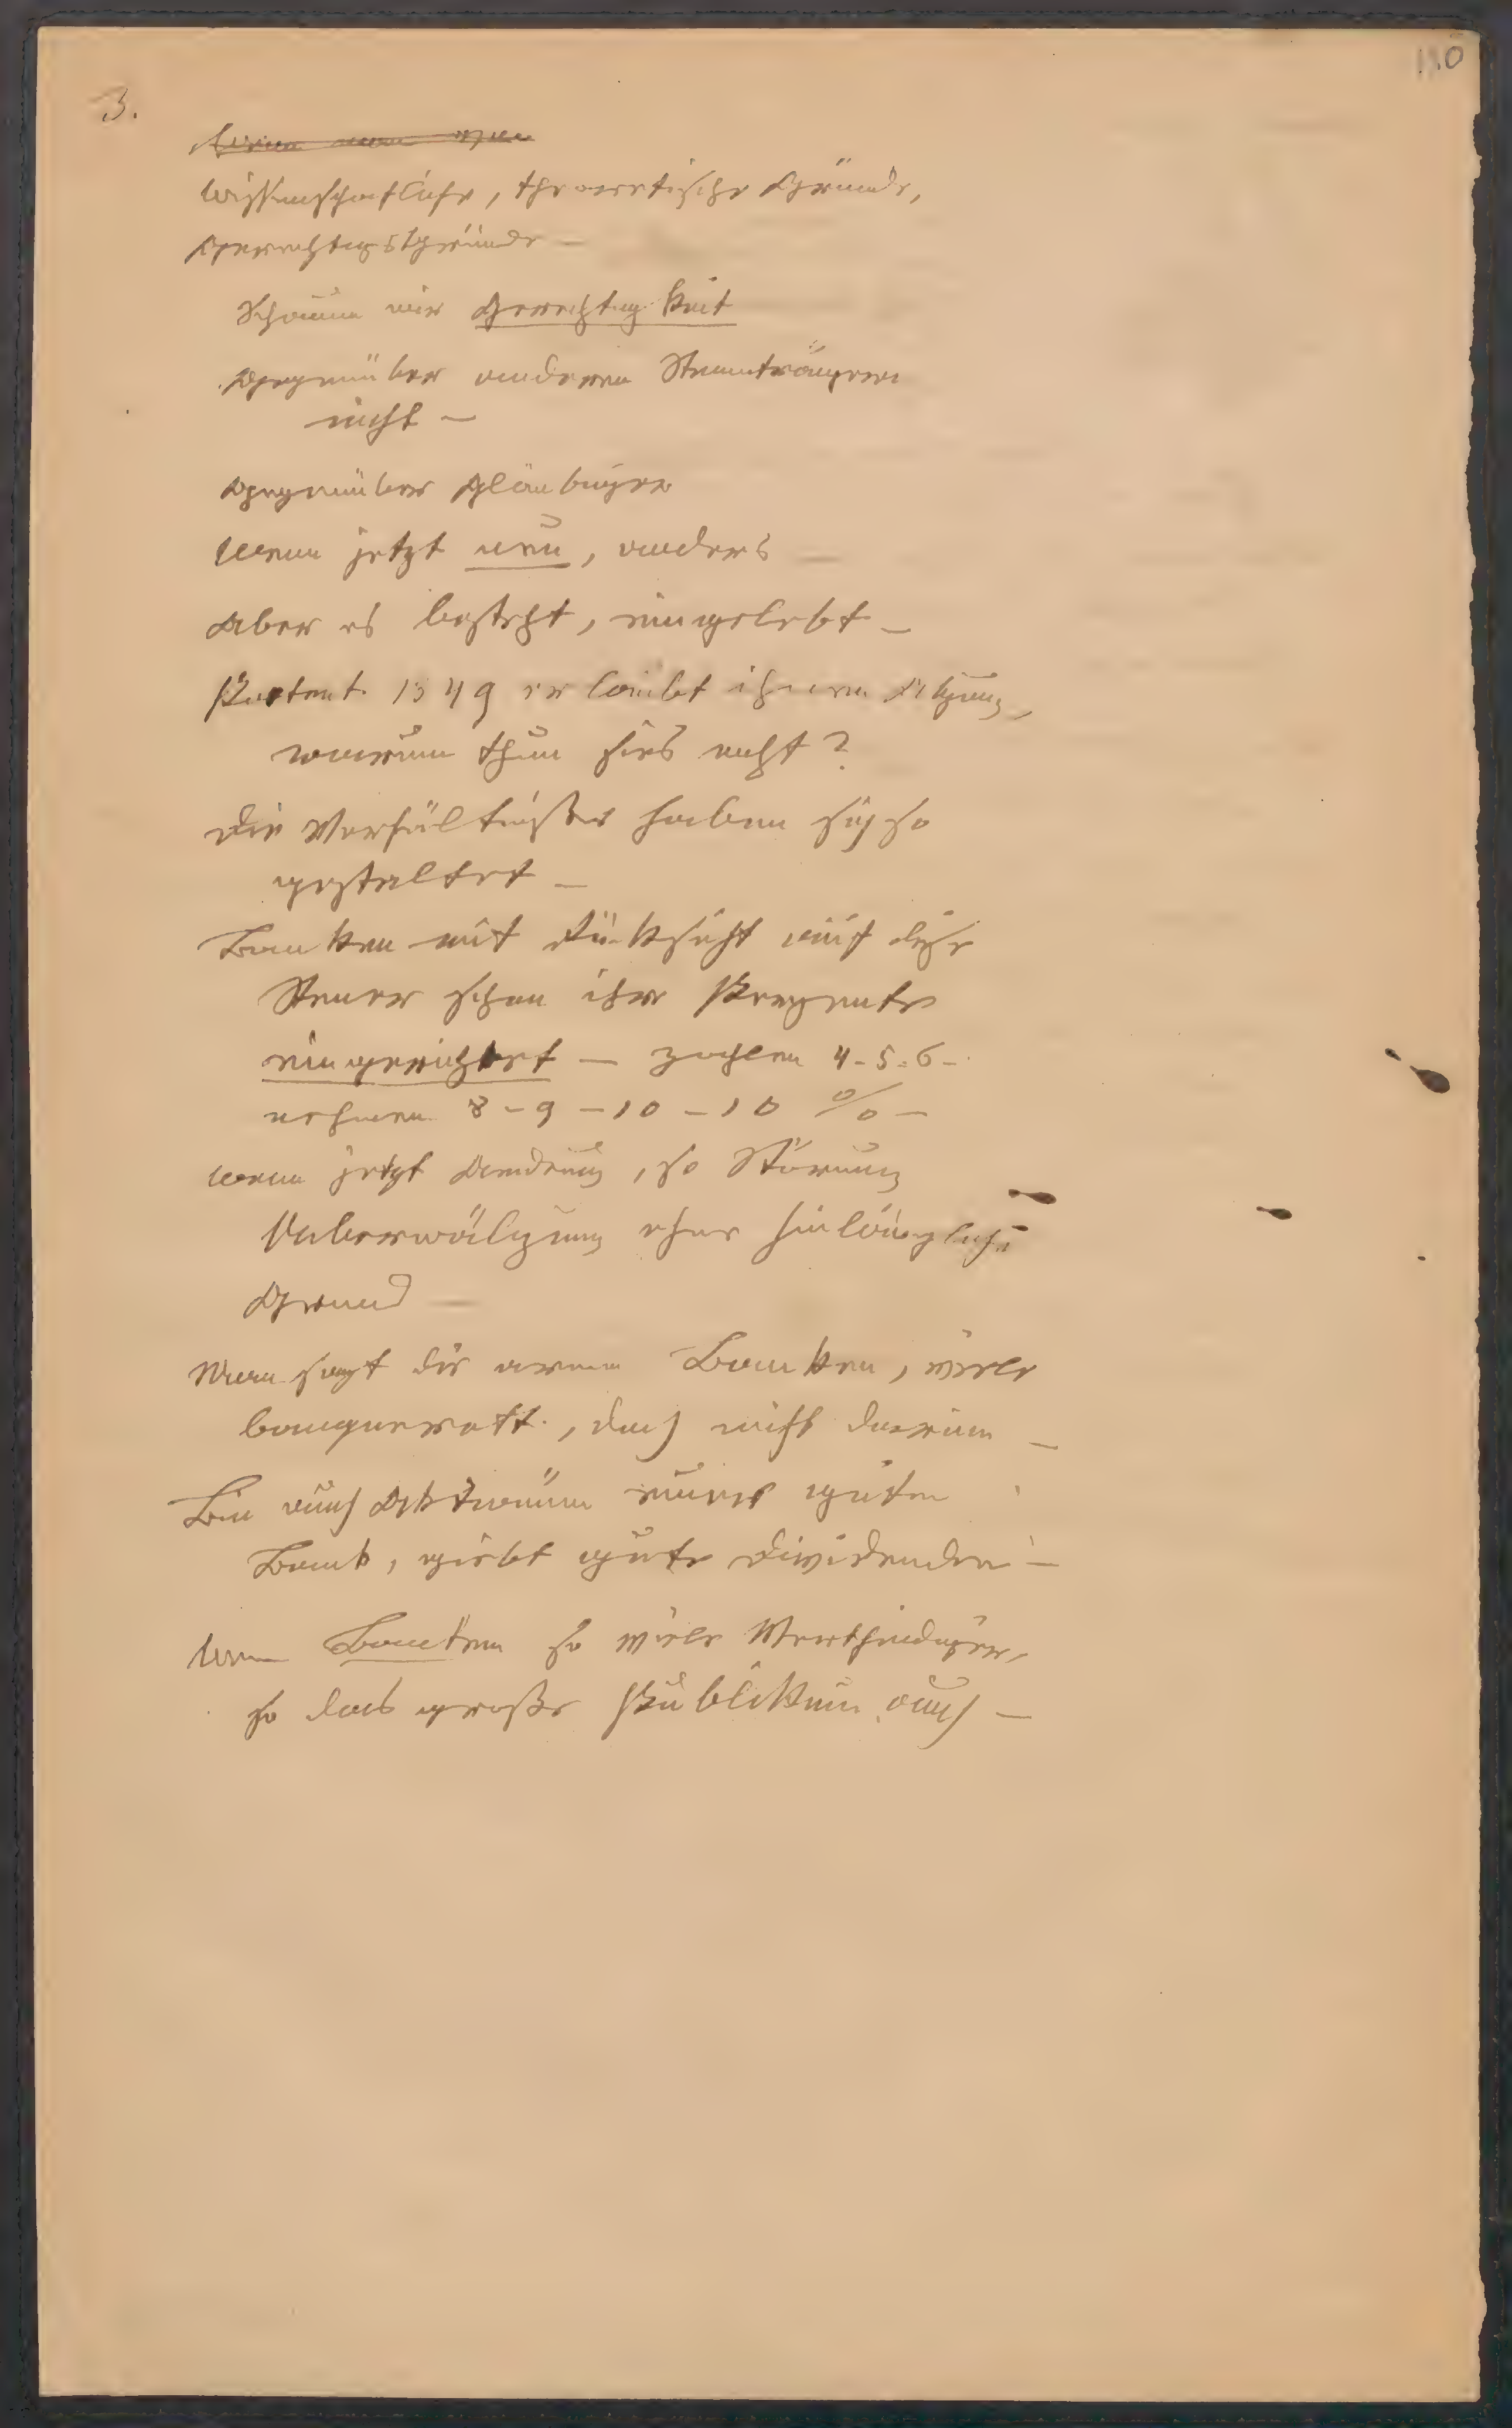 110
3.
wissenschaftliche, theoretische Gründe,
Gerechtigk[ei]tsgründe —
Schauen wir Gerechtigkeit
Gegenüber anderen Steuerträgern
nicht —
Gegenüber Gläubiger
wenn jetzt neu, anders —
Aber es besteht, eingelebt —
Patent 1849 erlaubt ihnen Abzug,
warum thun sies nicht?
Die Verhältnisse haben sich so
gestaltet —
Banken mit Rücksicht auf diese
Steuer schon ihre Prozente
eingerichtet — zahlen 4-5-6-
nehmen 8-9-10-10 % —
wenn jetzt Aenderung, so Störung
Ueberwälzung ohne hinlängliche
Grund —
Man sagt die armen Banken, viele
banquerott, doch nicht darum —
Bin auch Aktionär einer guten
Bank, giebt gute Dividenden —
Wenn Banken so viele Vertheidiger,
so das große Publikum auch —